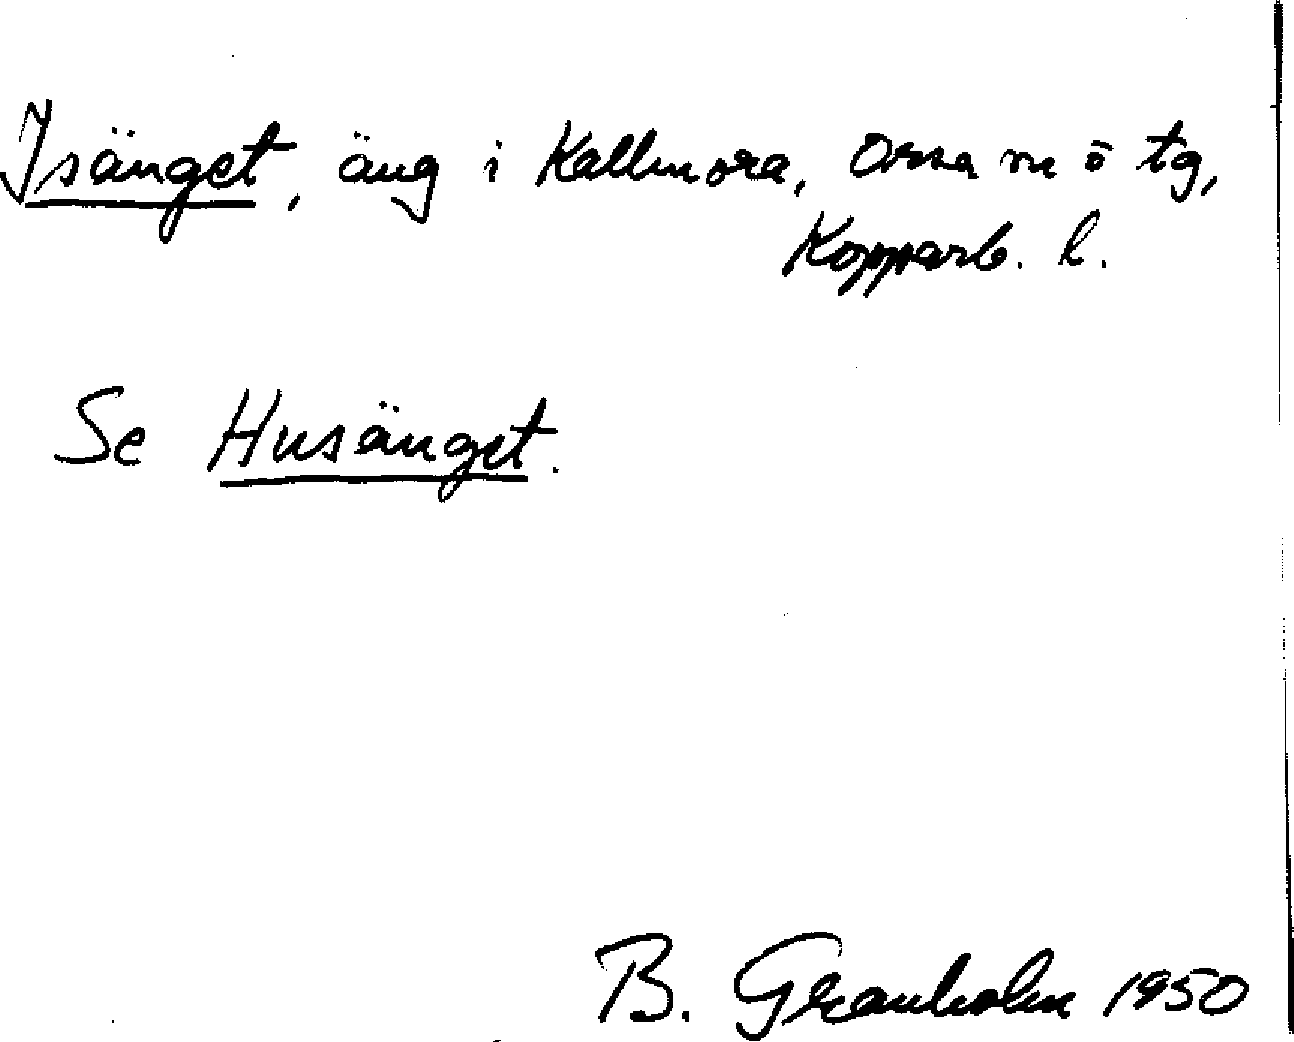 Isänget, äng i Kallmora, Orsa sn o tg,
Kopparb. l.
Se Husänget.
B. Granholm 1950